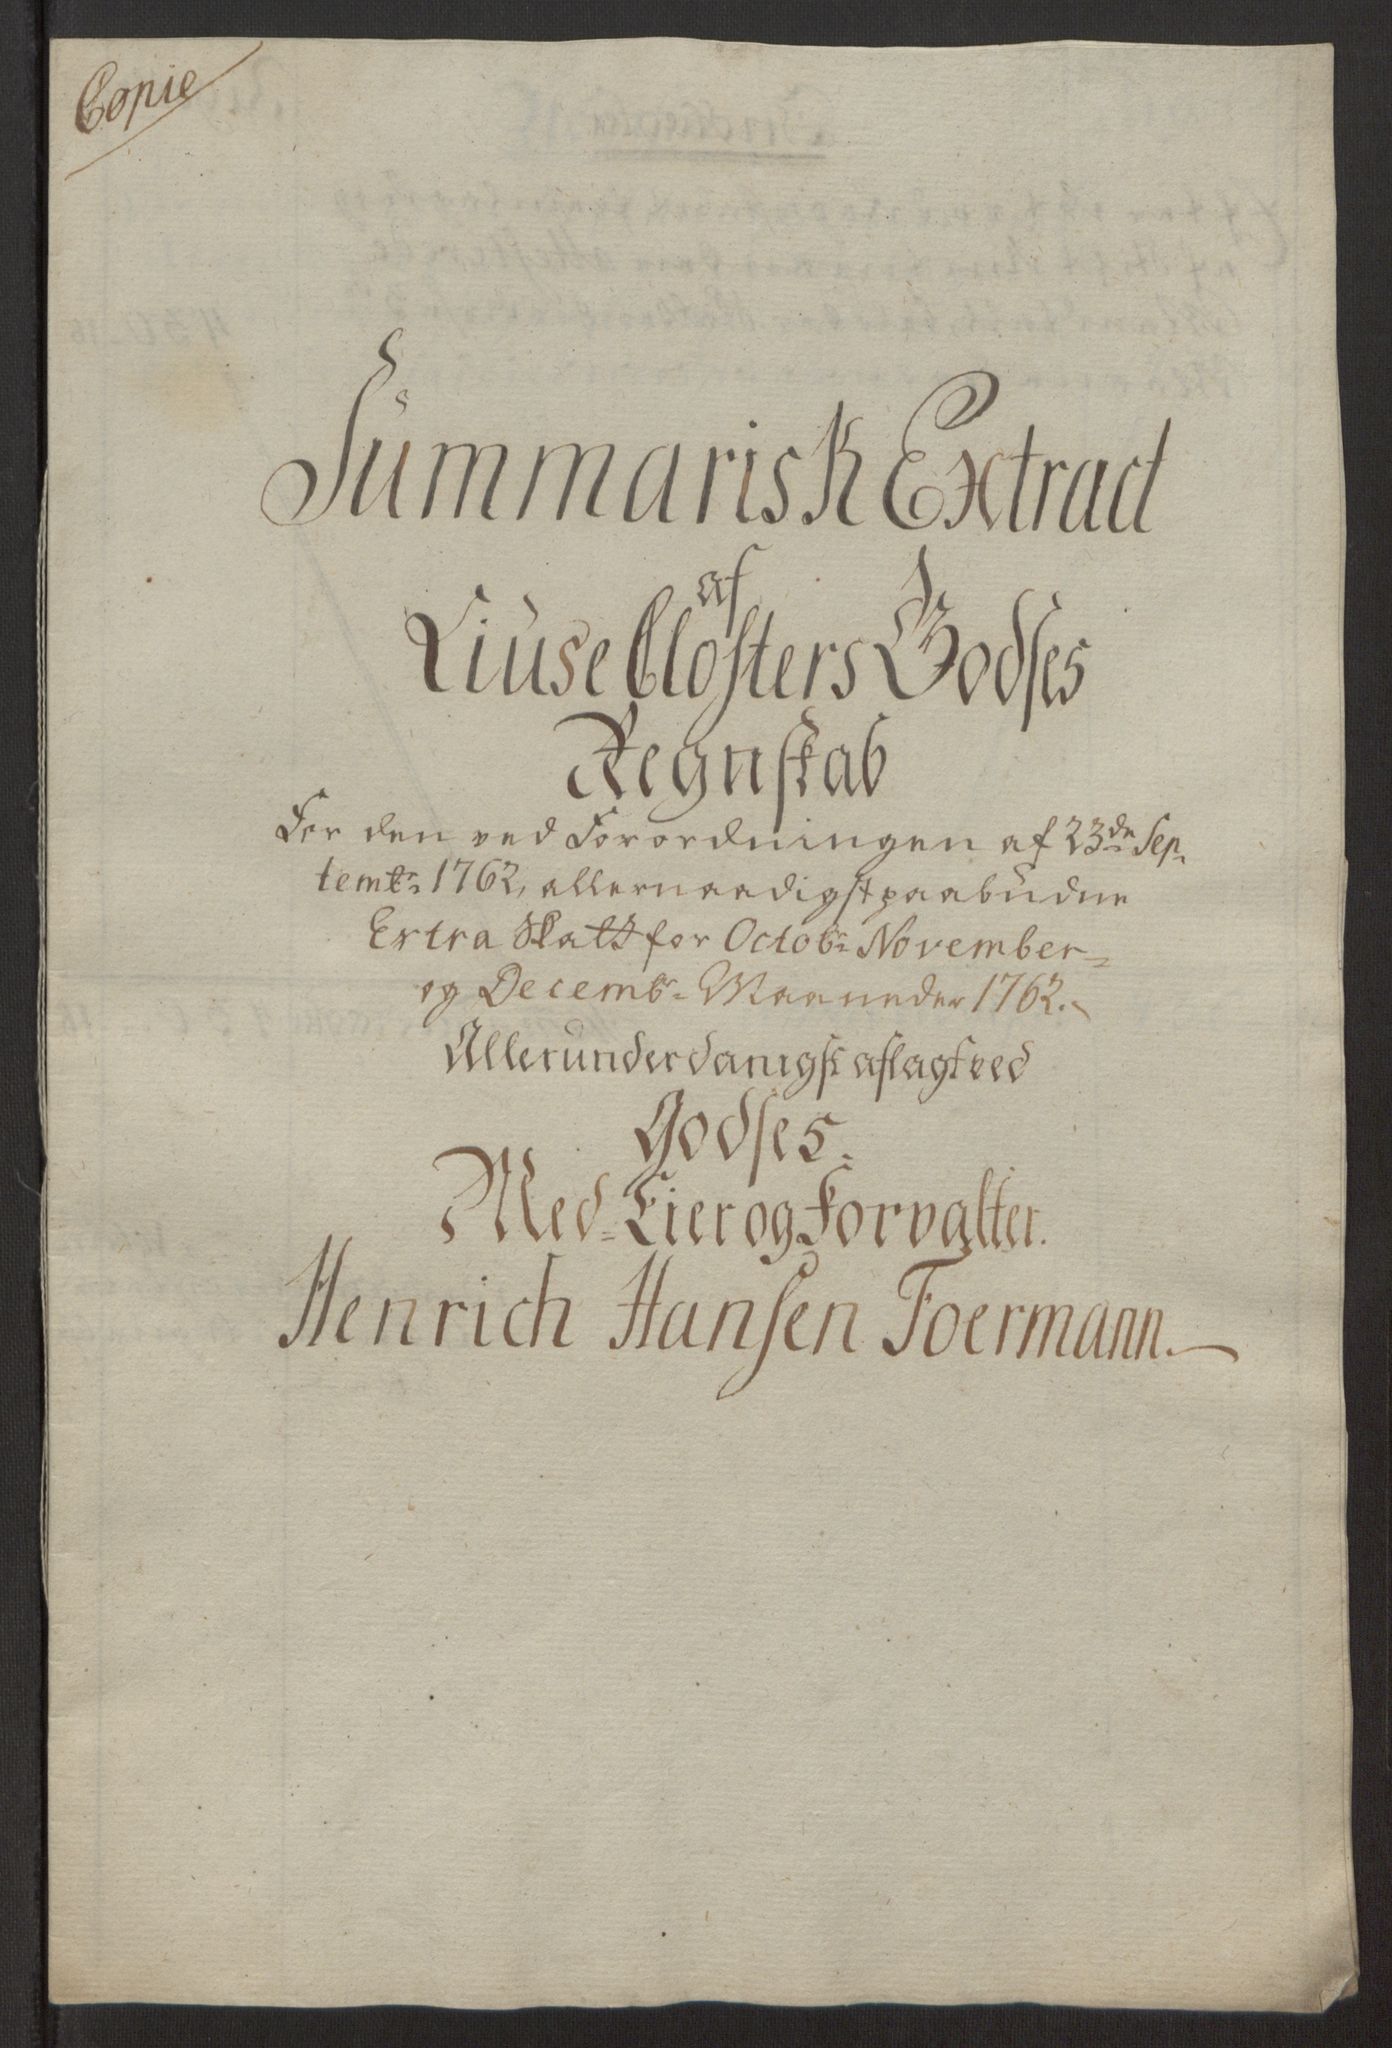 Copie
Summarisk Extract
af
Liuse Closters Godses
Regnskab
For den ved Forordningen af 23de Sep-
tembr 1762, allernaadigst paabudne
Extra Skatt for Octobr November-
og Decembr Maaneder 1762.
Allerunderdanigst aflagt ved
Godses-
Med-Eier og Forvalter.
Henrich Hansen Foermann.